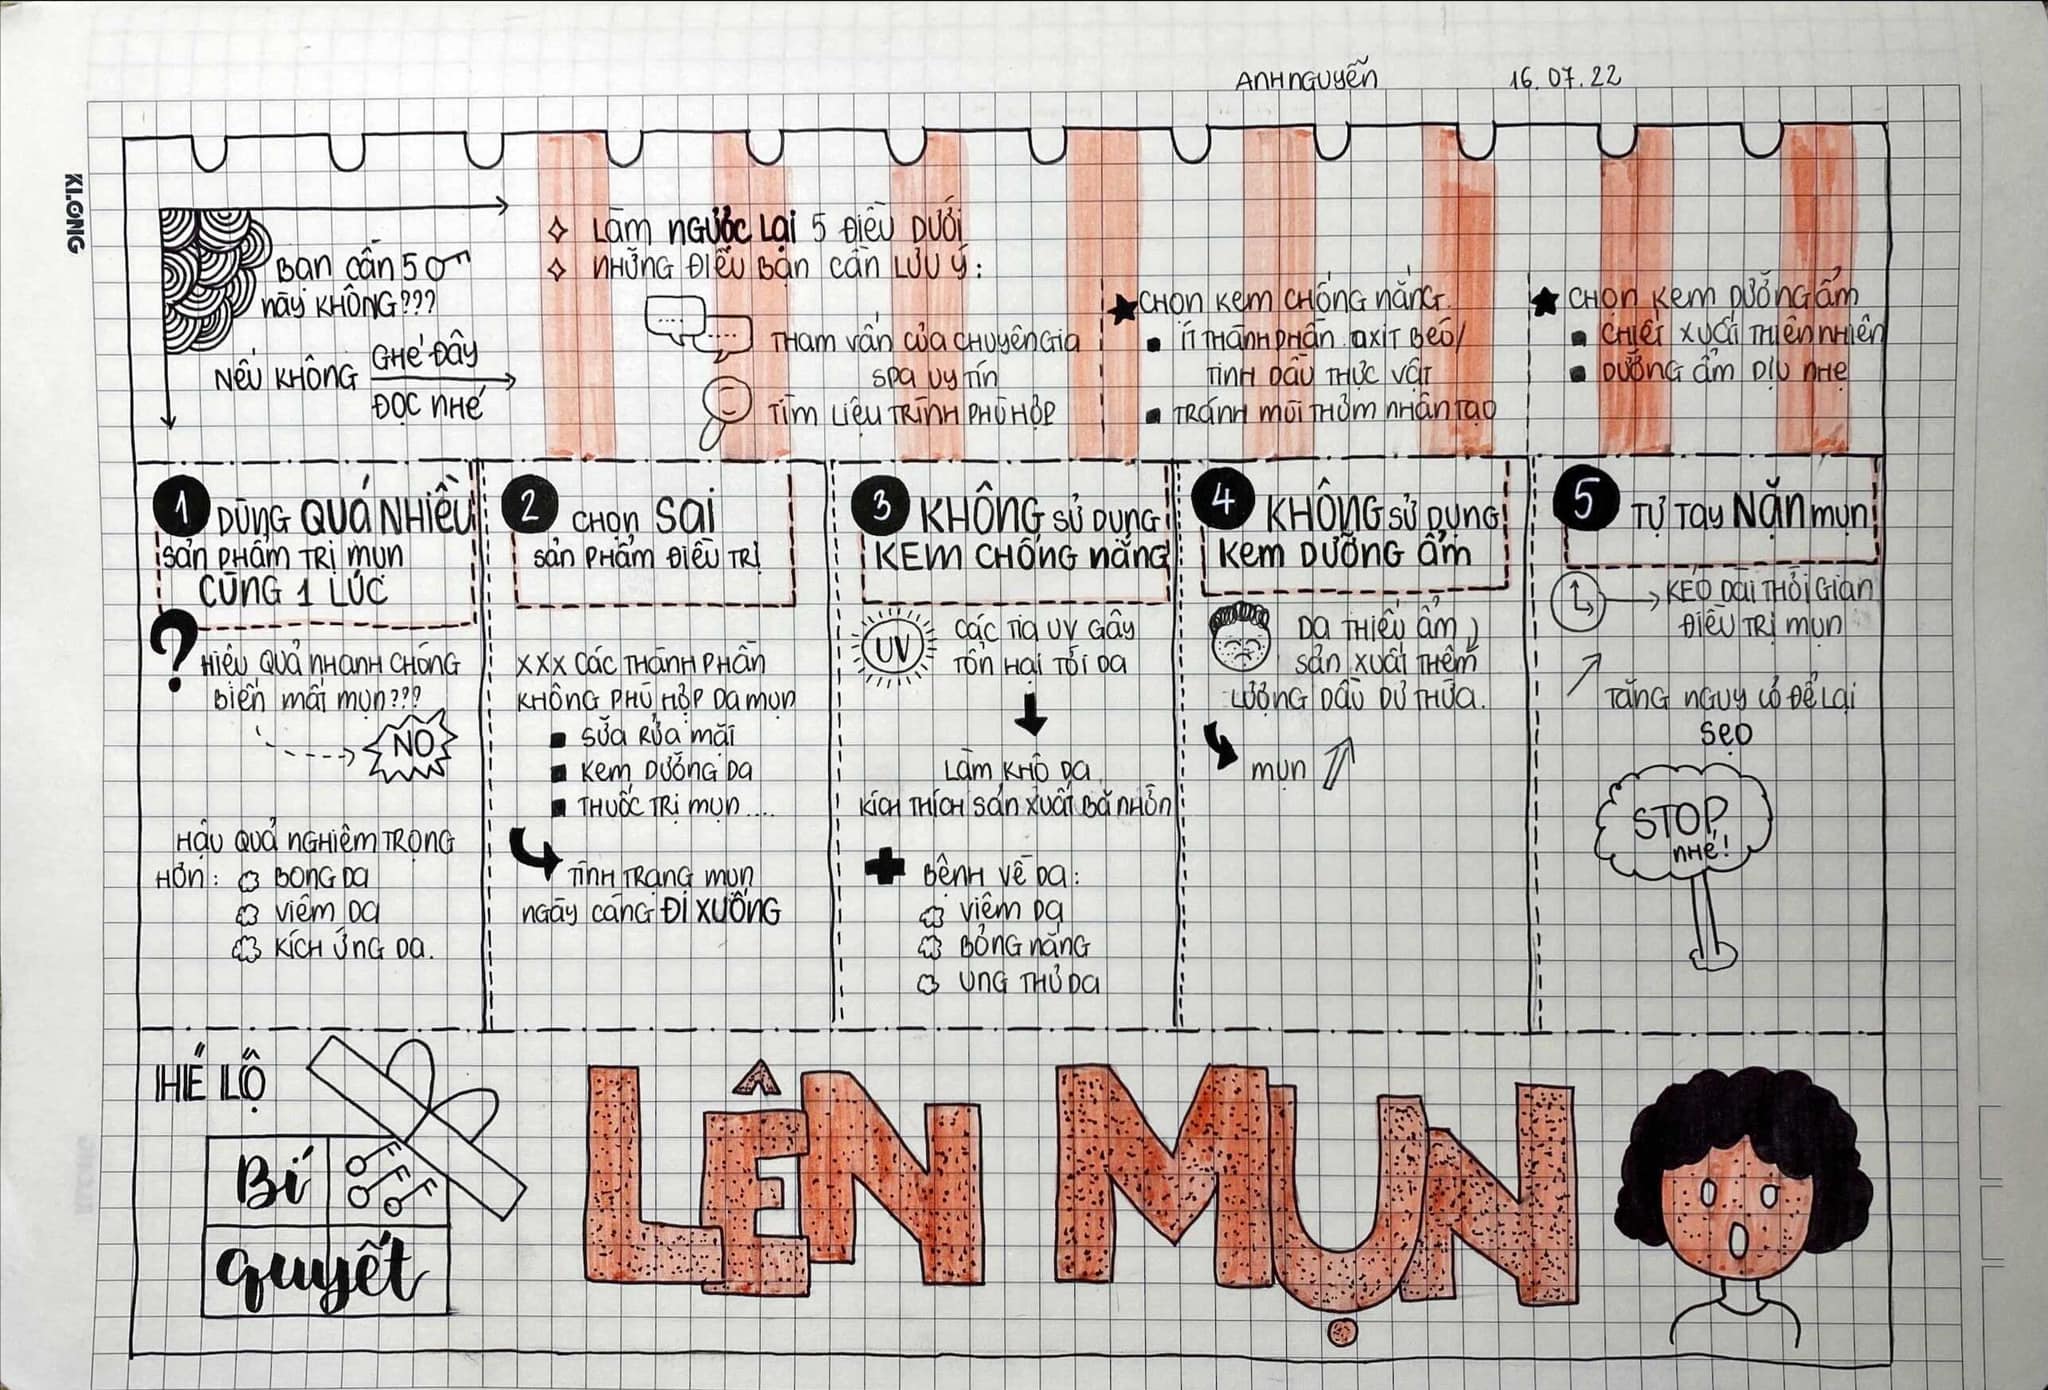 ANH NGUYỄN 16.07.22
KLONG
BẠN CẦN 5
NÀY KHÔNG???
NẾU KHÔNG GHÉ ĐÂY
ĐỌC NHÉ
LÀM NGƯỢC LẠI 5 ĐIỀU DƯỚI
NHỮNG ĐIỀU BẠN CẦN LƯU Ý:
THAM VẤN CỦA CHUYÊN GIA
SPA UY TÍN
TÌM LIỆU TRÌNH PHÙ HỢP
CHỌN KEM CHỐNG NẮNG
ÍT THÀNH PHẦN AXIT BÉO/
TINH DẦU THỰC VẬT
TRÁNH MÙI THƠM NHÂN TẠO
CHỌN KEM DƯỠNG ẨM
CHIẾT XUẤT THIÊN NHIÊN
DƯỠNG ẨM DỊU NHẸ
1 DÙNG QUÁ NHIỀU
SẢN PHẨM TRỊ MỤN
CÙNG 1 LÚC
? HIỆU QUẢ NHANH CHÓNG
BIẾN MẤT MỤN???
NO
HẬU QUẢ NGHIÊM TRỌNG
HƠN: BONG DA
VIÊM DA
KÍCH ỨNG DA.
2 CHỌN SAI
SẢN PHẨM ĐIỀU TRỊ
XXX CÁC THÀNH PHẦN
KHÔNG PHÙ HỢP DA MỤN
SỮA RỬA MẶT
KEM DƯỠNG DA
THUỐC TRỊ MỤN....
TÌNH TRẠNG MỤN
NGÀY CÀNG ĐI XUỐNG
3 KHÔNG SỬ DỤNG
KEM CHỐNG NẮNG
UV CÁC TIA UV GÂY
TỔN HẠI TỚI DA
LÀM KHÔ DA
KÍCH THÍCH SẢN XUẤT BÃ NHỜN
BỆNH VỀ DA:
VIÊM DA
BỎNG NẮNG
UNG THƯ DA
4 KHÔNG SỬ DỤNG
KEM DƯỠNG ẨM
DA THIẾU ẨM
SẢN XUẤT THÊM
LƯỢNG DẦU DƯ THỪA.
MỤN
5 TỰ TAY NẶN MỤN
KÉO DÀI THỜI GIAN
ĐIỀU TRỊ MỤN
TĂNG NGUY CƠ ĐỂ LẠI
SẸO
STOP
NHÉ!
HÉ LỘ
Bí
quyết
LÊN MỤN